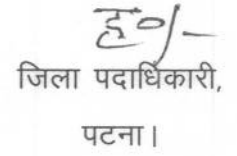 ह०/-
जिला पदाधिकारी,
पटना।